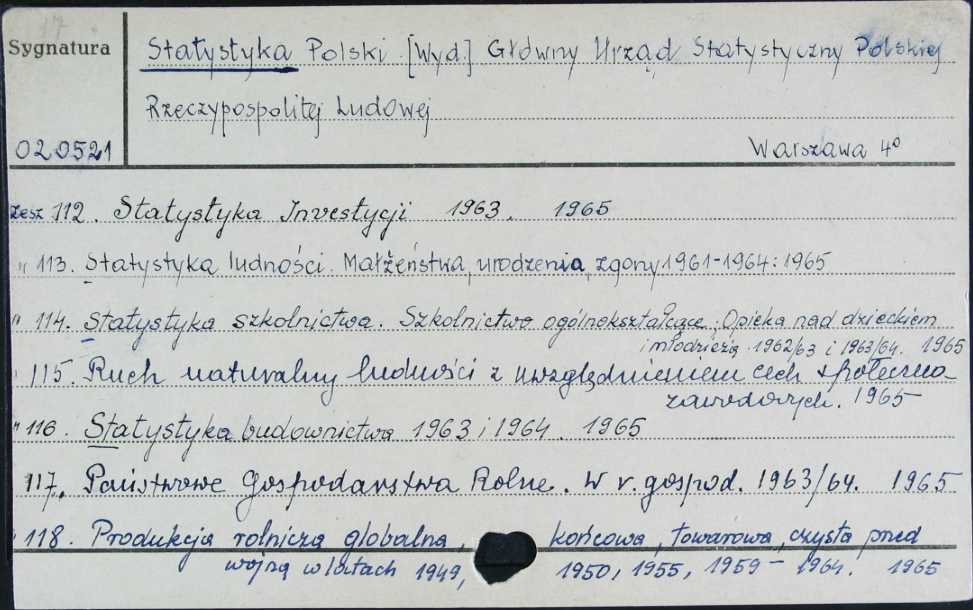 17
Sygnatura
Statystyka Polski [Wyd.] Główny Urząd Statystyczny Polskiej
Rzeczypospolitej Ludowej
020521 Warszawa 4º
zesz 112. Statystyka Inwestycji 1963. 1965
" 113. Statystyka ludności. Małżeństwa, urodzenia, zgony 1961-1964: 1965
" 114. Statystyka szkolnictwa. Szkolnictwo ogólnokształcące; Opieka nad dzieckiem
i młodzieżą 1962/63 i 1963/64. 1965
" 115. Ruch naturalny ludności z uwzględnieniem cech społeczno
zawodowych. 1965
" 116. Statystyka budownictwa 1963 i 1964. 1965
117. Państwowe Gospodarstwa Rolne. W r. gospod. 1963/64. 1965
" 118. Produkcja rolnicza globalna, końcowa, towarowa, czysta przed
wojną w latach 1949, 1950, 1955, 1959 - 1964. 1965